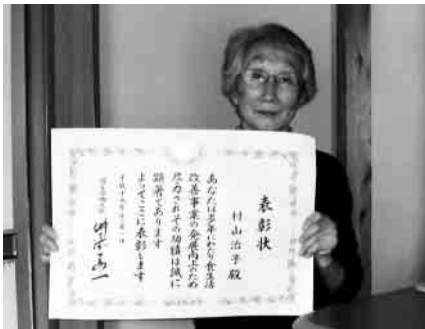 表彰状
村山治子殿
あなたは多年にわたり食生活
改善事業の発展向上のため
尽力されその功績は誠に
顕著であります
よってここに表彰します